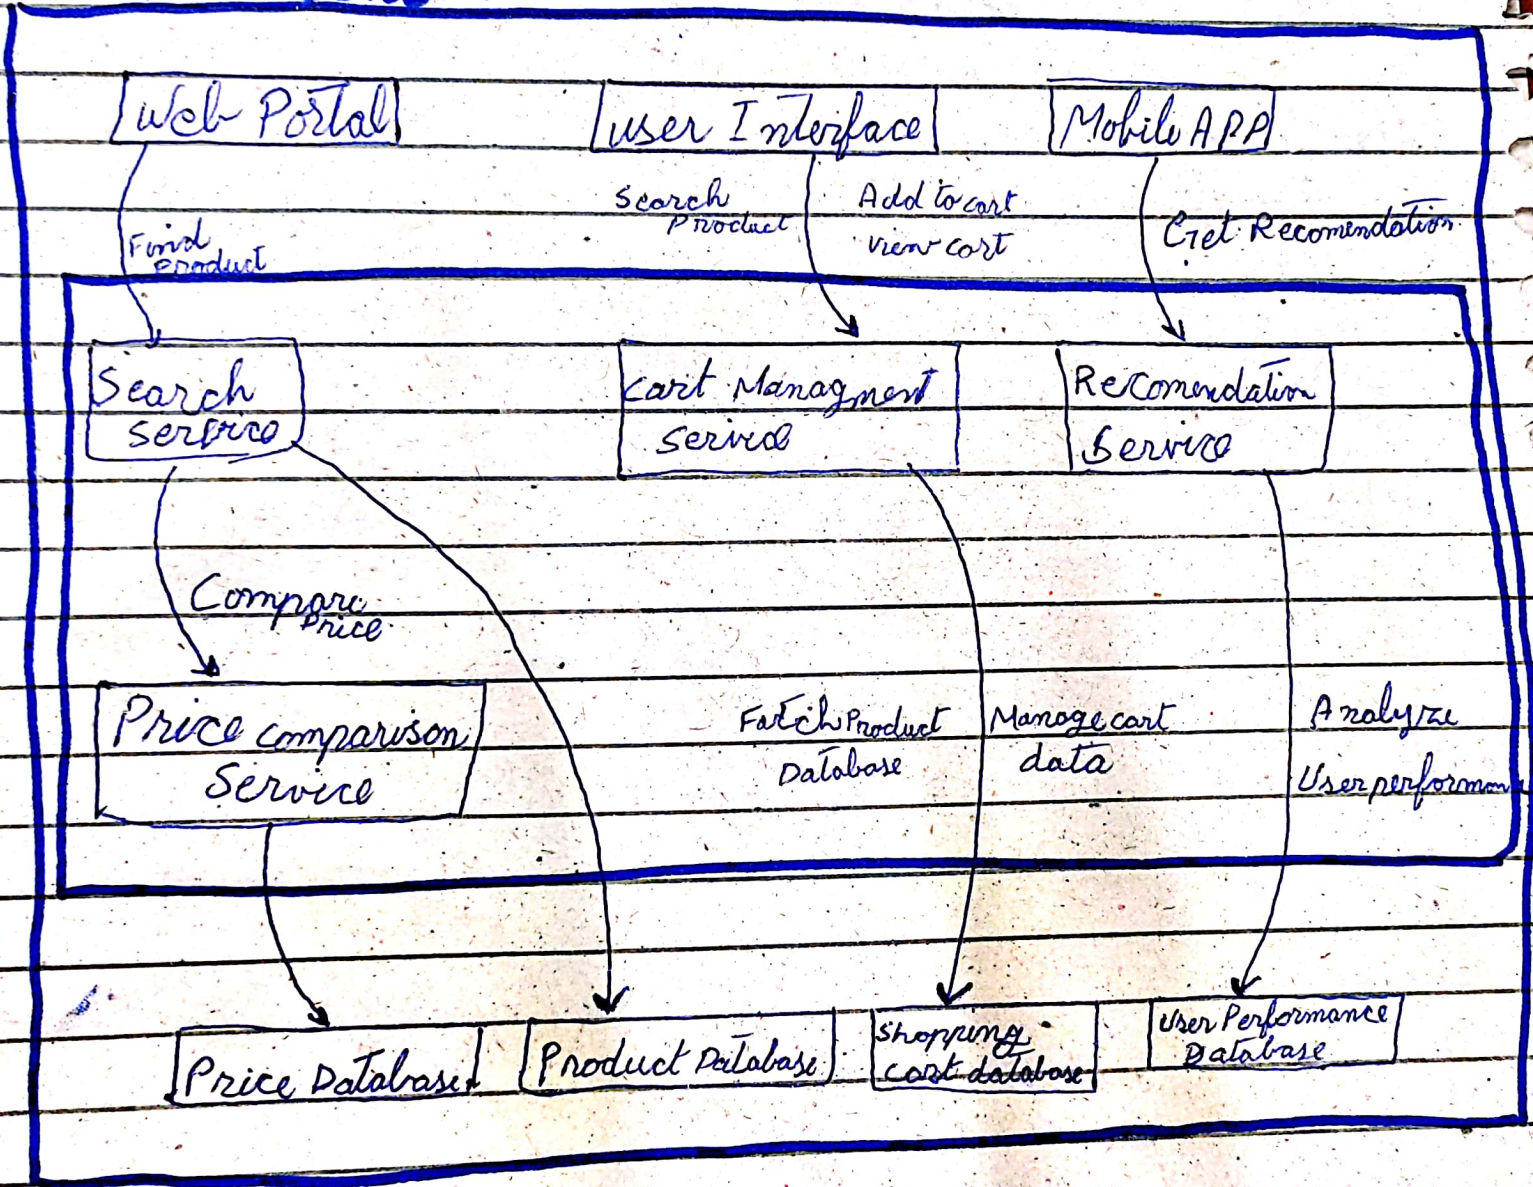 Web Portal
user Interface
Mobile APP
Search
Product
Add to cart
view cart
Get Recomendation
Find
Product
Search
service
Cart Managment
Service
Recomendation
Service
Compare
Price
Price comparison
Service
Fatch Product
Database
Manage cart
data
Analyze
User performan
Price Database
Product Database
Shopping
cart database
User Performance
Database